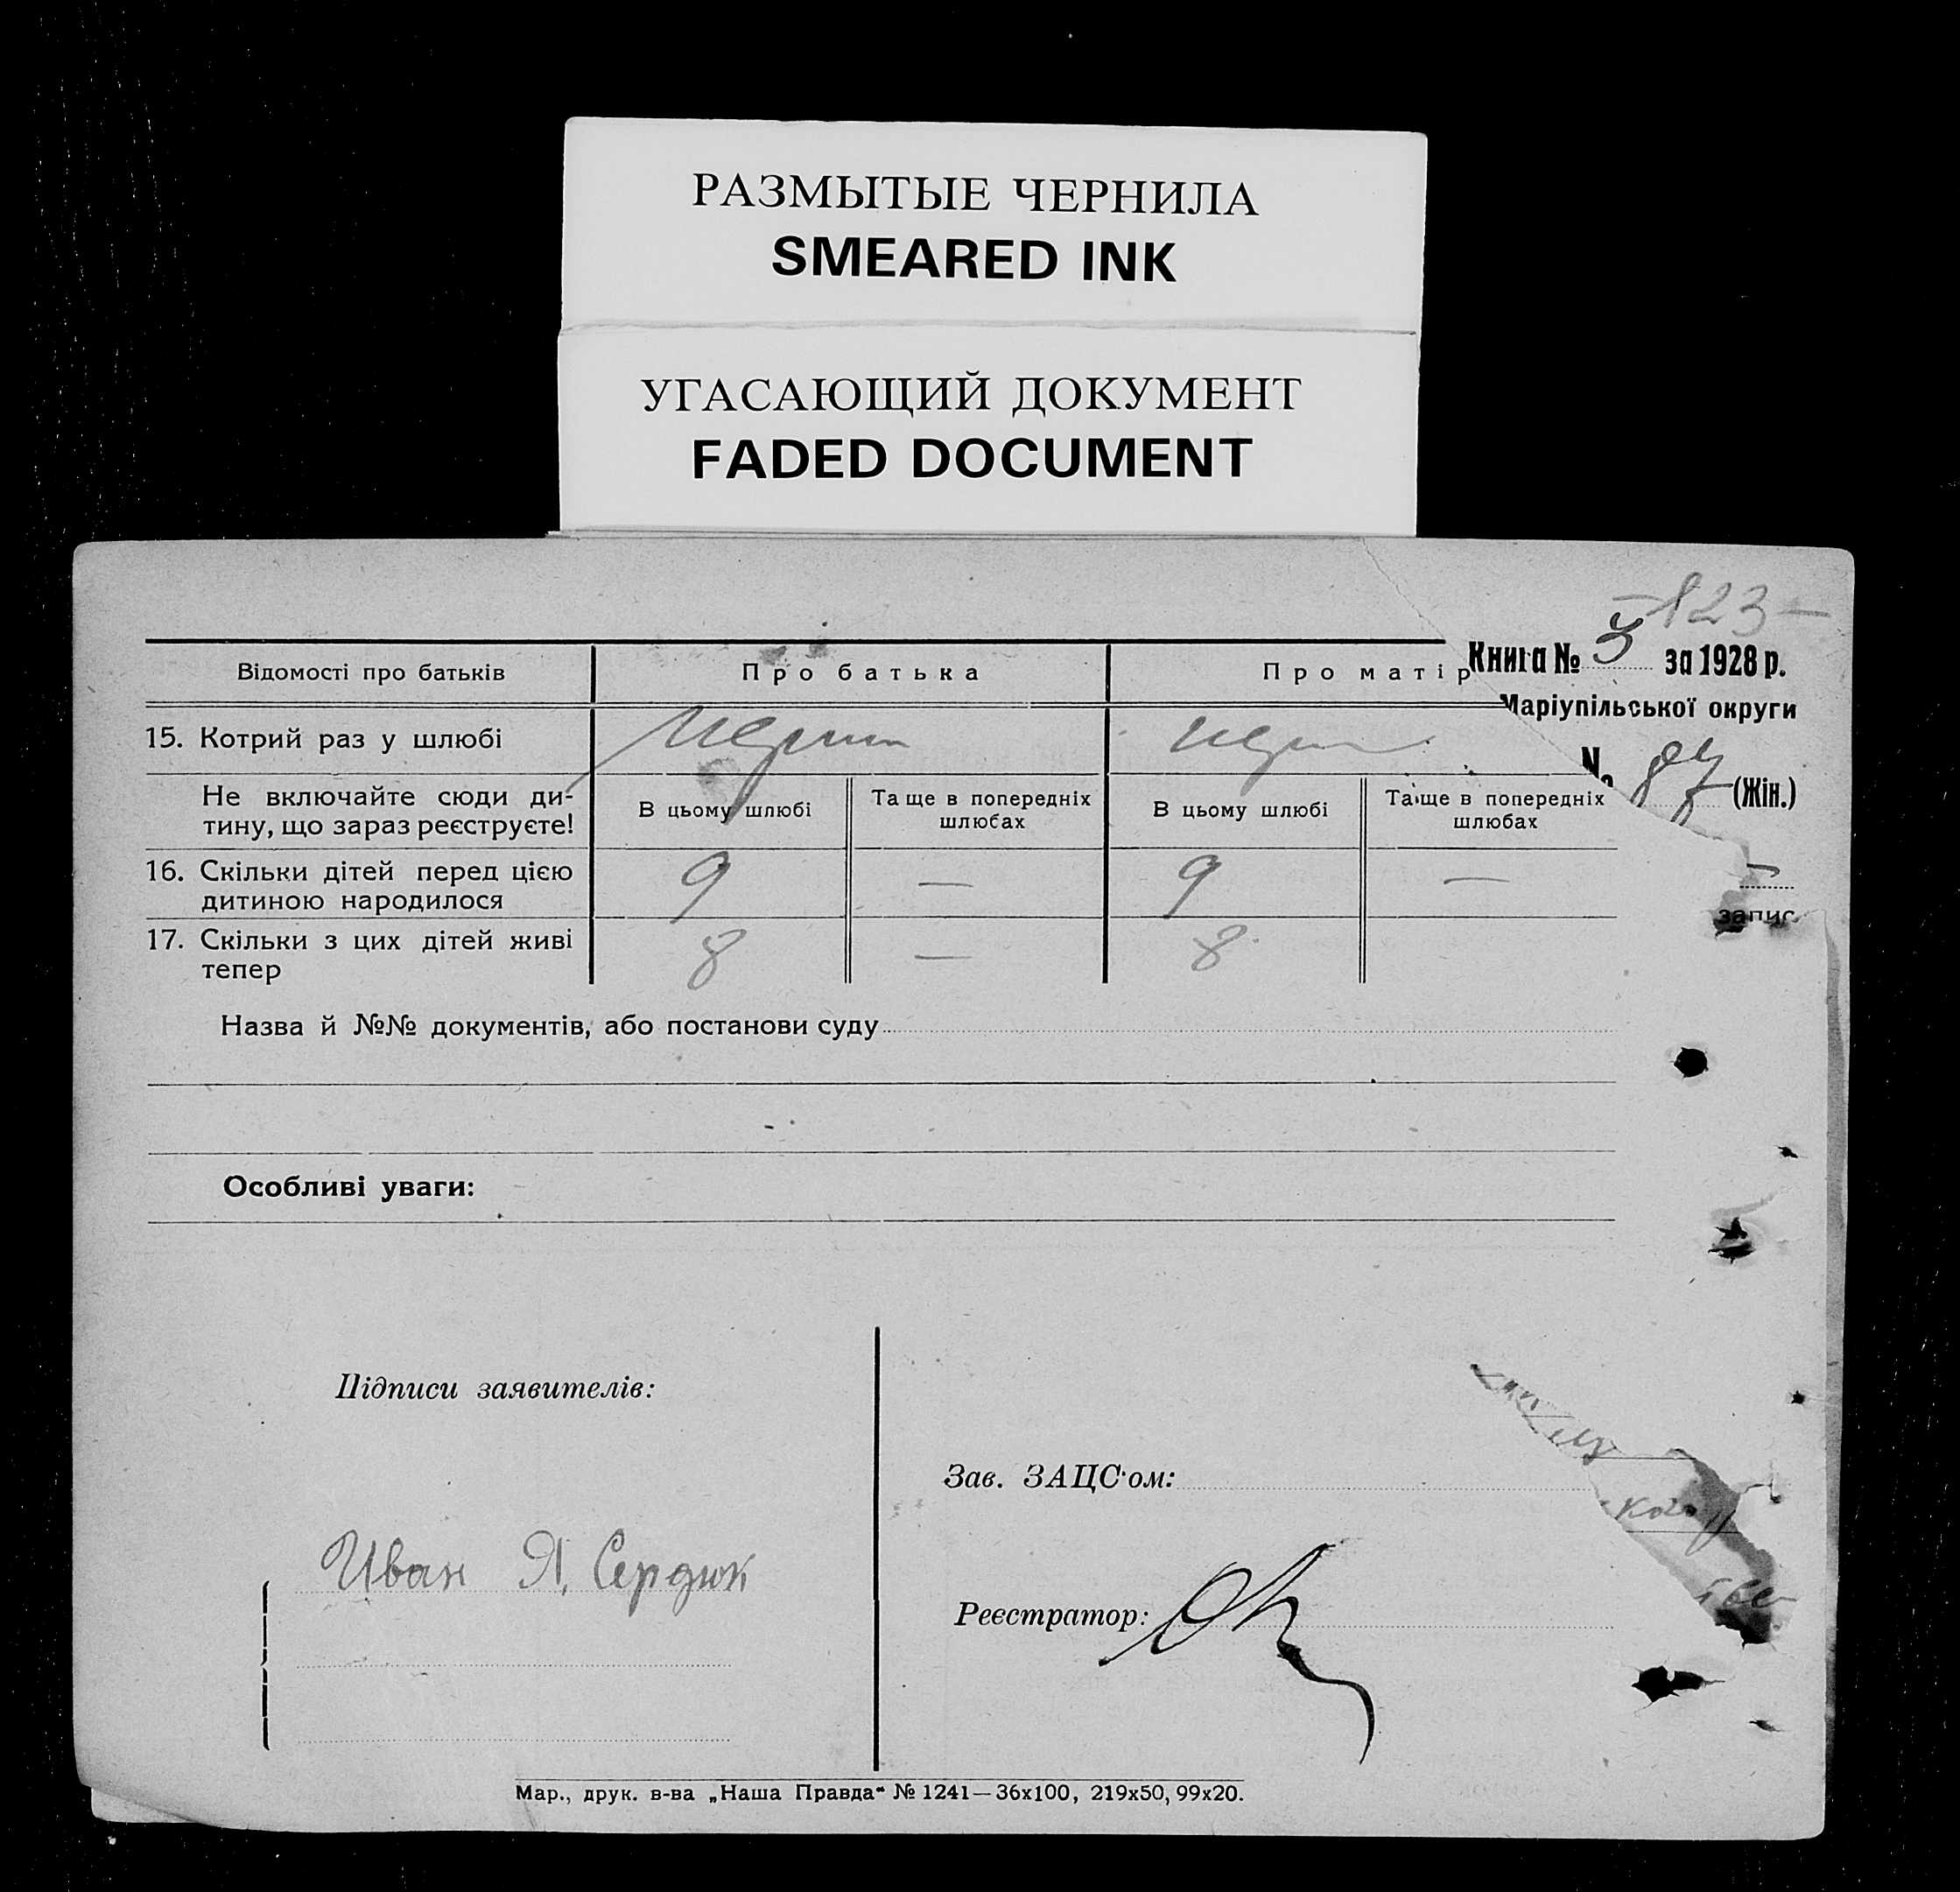 РАЗМЫТЫЕ ЧЕРНИЛА
SMEARED INK
УГАСАЮЩИЙ ДОКУМЕНТ
FADED DOCUMENT
–123–
Книга № за 1928 р.
Маріупільської округи
87 (Жін.)
запис
Відомості про батьків Про батька Про матір
15. Котрий раз у шлюбі
Не включайте сюди ди-
тину, що зараз реєструєте!
В цьому шлюбі Та ще в попередніх шлюбах В цьому шлюбі Та ще в попередніх шлюбах
16. Скільки дітей перед цією
дитиною народилося 9 — 9 —
17. Скільки з цих дітей живі
тепер 8 — 8
Назва й №№ документів, або постанови суду
Особливі уваги:
Підписи заявителів:
Зав. ЗАЦС'ом:
Иван Я. Сердюк
Реєстратор:
Мар., друк. в-ва „Наша Правда“ № 1241—36х100, 219х50, 99х20.